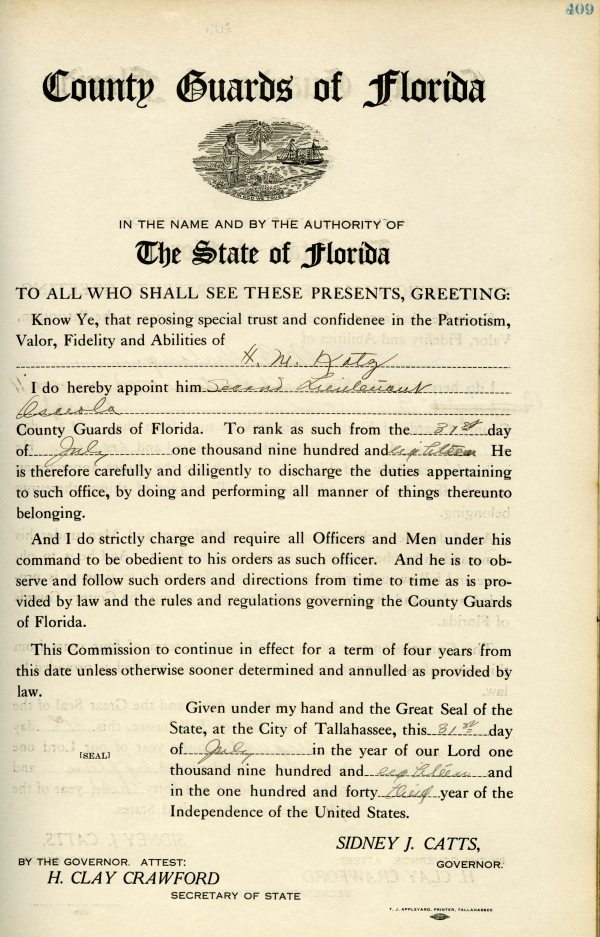 409
County Guards of Florida
IN GOD WE TRUST
IN THE NAME AND BY THE AUTHORITY OF
The State of Florida
TO ALL WHO SHALL SEE THESE PRESENTS, GREETING:
Know Ye, that reposing special trust and confidenee in the Patriotism,
Valor, Fidelity and Abilities of
H. M. Katz
I do hereby appoint him Second Lieutenant
Osceola
County Guards of Florida. To rank as such from the 31st day
of July one thousand nine hundred and eighteen He
is therefore carefully and diligently to discharge the duties appertaining
to such office, by doing and performing all manner of things thereunto
belonging.
And I do strictly charge and require all Officers and Men under his
command to be obedient to his orders as such officer. And he is to ob-
serve and follow such orders and directions from time to time as is pro-
vided by law and the rules and regulations governing the County Guards
of Florida.
This Commission to continue in effect for a term of four years from
this date unless otherwise sooner determined and annulled as provided by
law.
Given under my hand and the Great Seal of the
State, at the City of Tallahassee, this 31st day
[SEAL] of July in the year of our Lord one
thousand nine hundred and eighteen and
in the one hundred and forty third year of the
Independence of the United States.
SIDNEY J. CATTS,
GOVERNOR.
BY THE GOVERNOR. ATTEST:
H. CLAY CRAWFORD
SECRETARY OF STATE
T. J. APPLEYARD, PRINTER, TALLAHASSEE